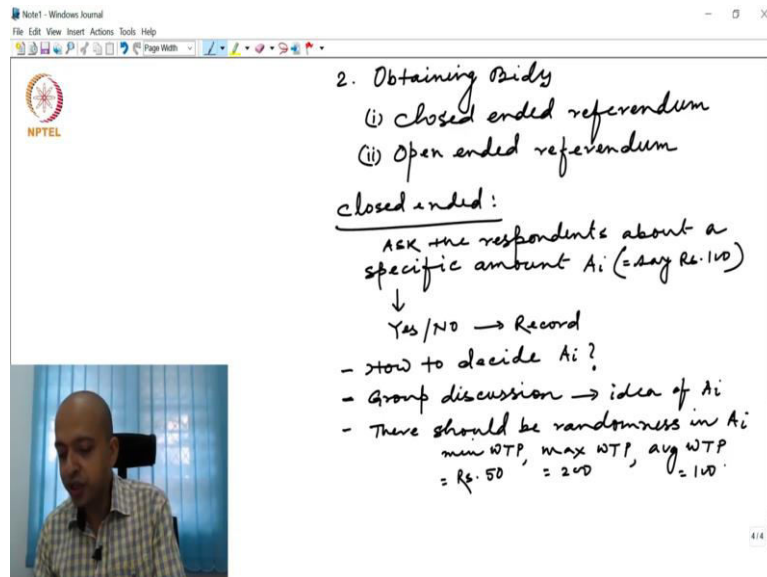 Note1 - Windows Journal
File Edit View Insert Actions Tools Help
Page Width
NPTEL
2. Obtaining Bids
(i) closed ended referendum
(ii) Open ended referendum
closed ended:
ASK the respondents about a
specific amount Ai (= say Rs. 100)
↓
Yes/NO → Record
- How to decide Ai?
- Group discussion → idea of Ai
- There should be randomness in Ai
min WTP, max WTP, avg WTP
= Rs. 50 = 200 = 100
4/4